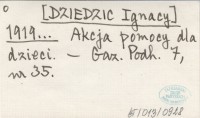 [DZIEDZIC Ignacy]
1919... Akcja pomocy dla
dzieci. – Gaz. Podh. 7,
nr 35.